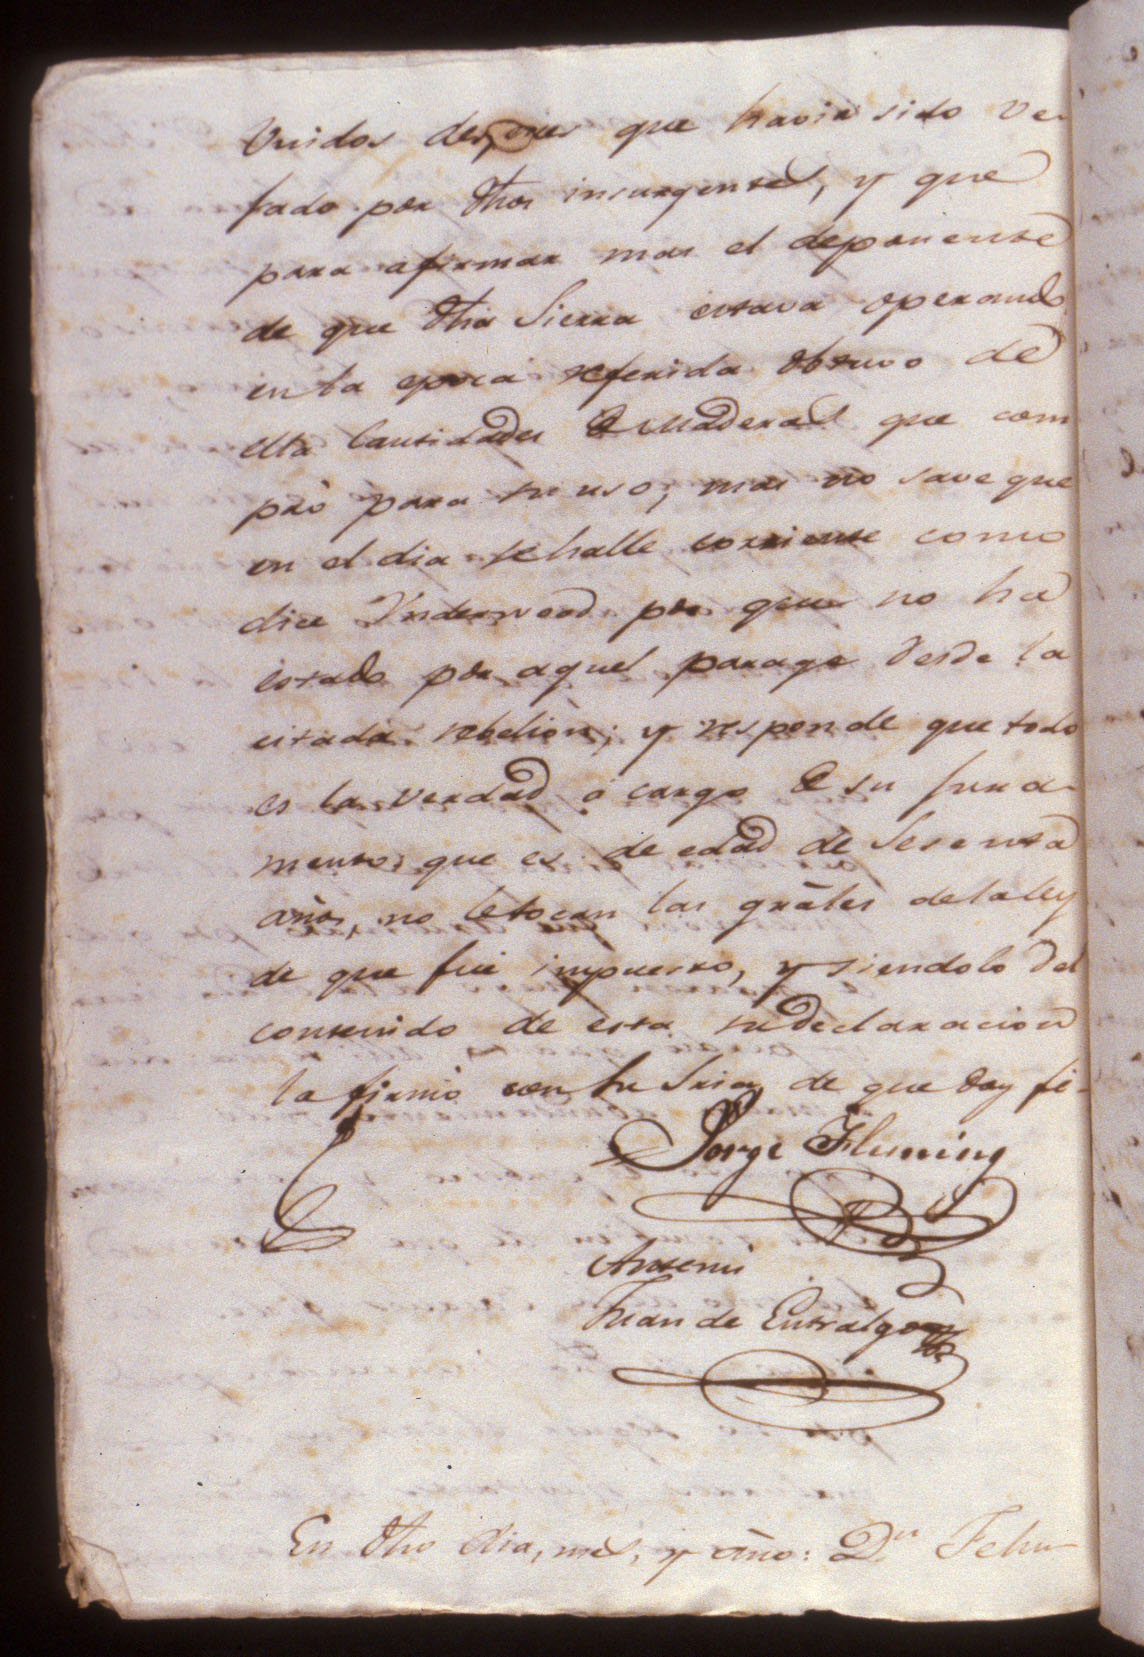 Unidos despues que havia sido ve-
jado por dhos insurgentes, y que
para afirmar mas el deponente
de que dha Sierra estava operando
en la epoca referida obtuvo de
ella Cantidades de Maderas que com
prò para su uso, mas no save que
en el dia se halle corriente como
dice Underwood por que no ha
estado por aquel parage desde la
citada rebelion; y responde que todo
es la verdad á cargo de su jura-
mento, que es de edad de Sesenta
años, no le tocan las gràles de la ley
de que fue impuesto, y siendolo del
contenido de esta su declaracion
la firmò con su Sria, de que doy fè-
Jorge Fleming
Antemi
Juan de Entralgo
En dho dia, mes, y año: Dn